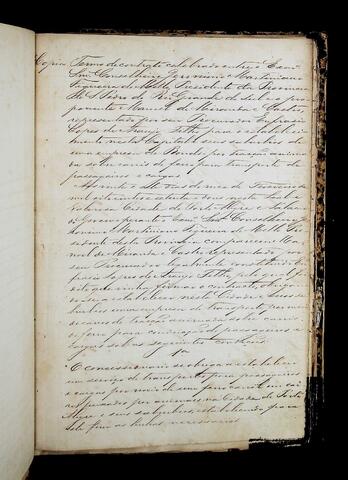 Copia Termo de contracto celebrado entre o Exmo
Snr. Conselheiro Jeronimo Martiniano
Figueira de Mello Presidente da Provincia
de S. Pedro do Rio Grande do Sul e o pro-
ponente Manoel de Miranda e Castro
representado por seu Procurador Eufrasio
Lopes de Araujo Filho para o estabeleci-
mento nesta Capital e seus suburbios de
uma empreza de Bonds por tracção anima-
da sobre carris de ferro para transporte de
passageiros e cargas.
do mez de Fevereiro de
mil oito centos setenta e dous nesta Leal e
Valorosa Cidade de Porto Alegre e Palacio
do Governo perante o Exmo Snr. Conselheiro Je-
ronimo Martiniano Figueira de Mello Pre-
sidente desta Provincia compareceu Ma-
noel de Miranda e Castro representado por
seu Procurador
Lopes de Araujo Filho, pelo qual foi
dito que vinha firmar o contracto, obrigan-
do-se a estabelecer nesta Cidade e seus su-
burbios uma empreza de transporte por meio
de carros de tracção animada sobre carris
de ferro para conducção de passageiros e
cargas sobre as seguintes condições
1a
O concessionario se obriga a estabelecer
um serviço de transporte para passageiros
e cargas por meio de
puxados por animaes na Cidade de Porto
Alegre e seus suburbios, estabelecendo para
este fim as linhas necessarias